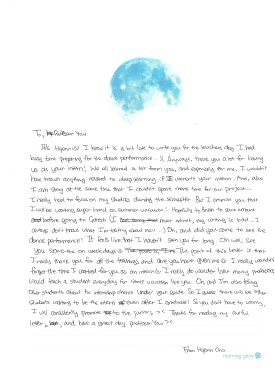 To, Professor You
It's Hyemin! I know it is a bit late to write you for the teachers day. I had
busy time preparing for the dance performance... Anyways, thank you a lot for having
us as your intern! We all learned a lot from you, and especially for me, I wouldn't
have known anything related to deep learning if I weren't your intern. And, also
I am sorry at the same time that I couldn't spare more time for our project...
I really had to focus on my studies during the semester. But I promise you that
I will be working super hard on summer vacation! Hopefully to finish to some amount
before going to Catesh (I must admit, my writing is bad... I
always don't know what I'm talking about now...) Oh, and did you come to see the
dance performance? It feels like that I haven't seen you for long. Oh well, see
you sometime on weekdays! The point of this letter is that
I really thank you for all the teachings and care you have given me & I really wouldn't
forget the time I worked for you as an intern! I really do wonder how many professors
would teach a student everyday for three weeks like you. Oh, and I'm also telling
other students about the internship classes under your guide. So I guess there will be other
students wanting to be the intern even after I graduate! So you don't have to worry,
I will constantly promote to the juniors >< Thanks for reading my awful
letter, and have a great day professor You ><
From Hyemin Cho
morning glory